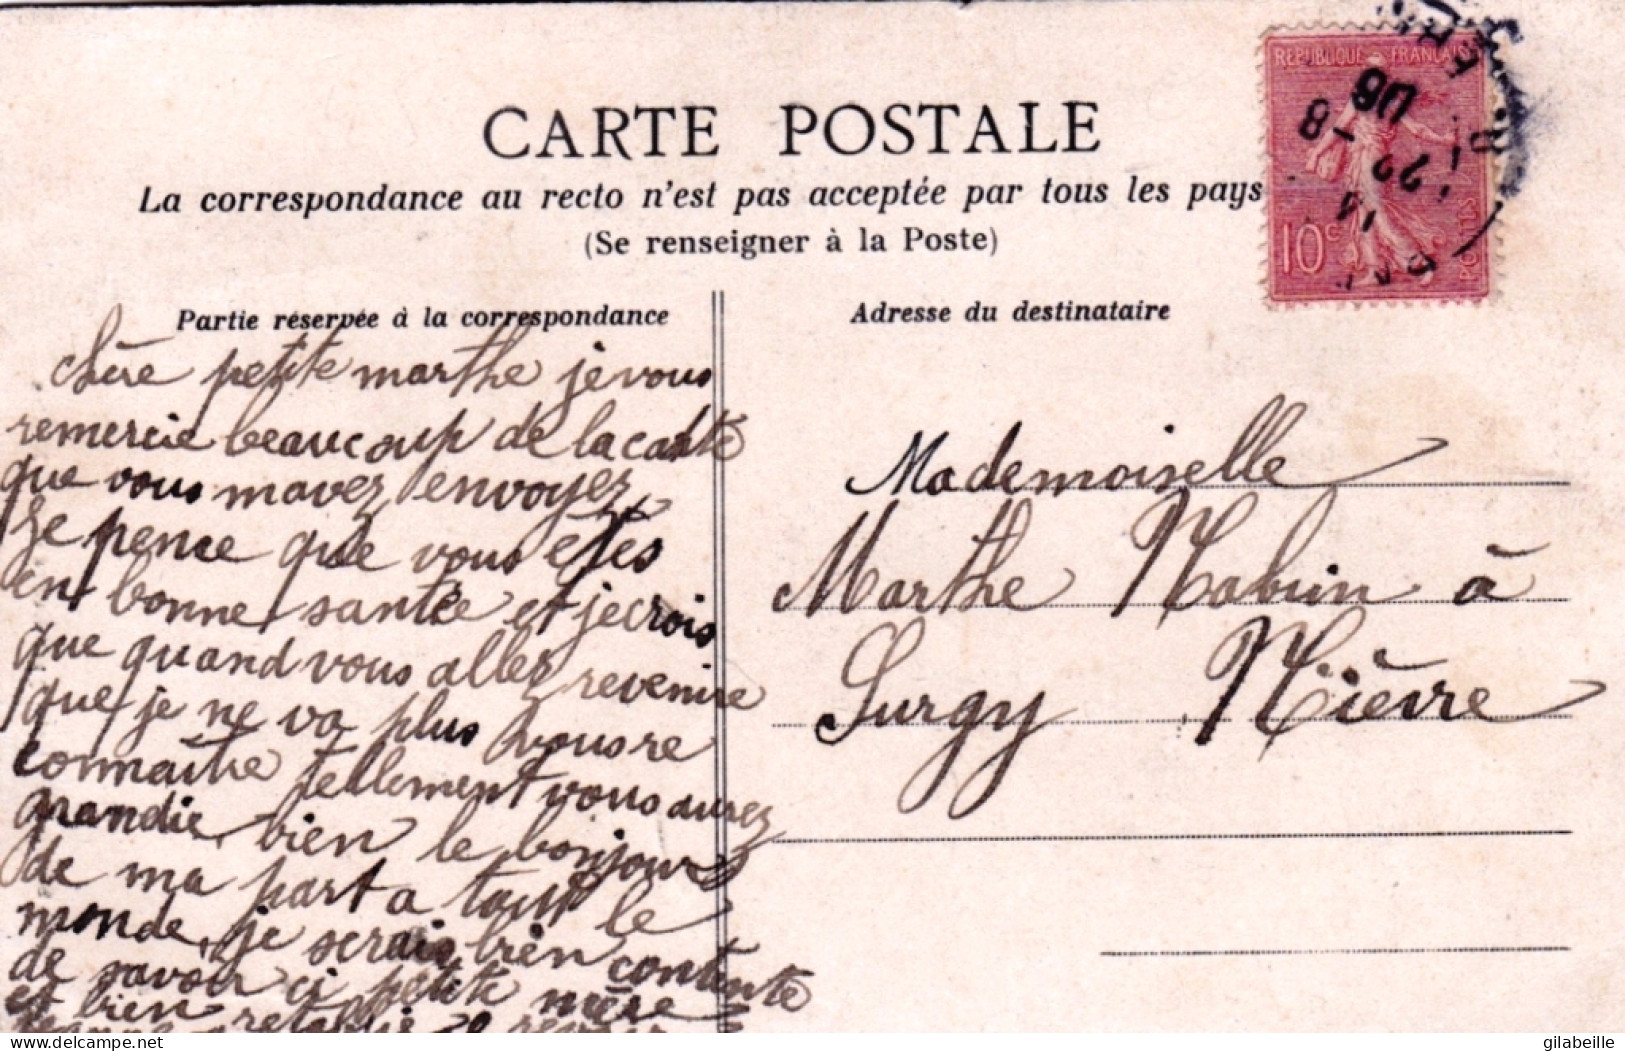 CARTE POSTALE
La correspondance au recto n'est pas acceptée par tous les pays
(Se renseigner à la Poste)
REPUBLIQUE FRANCAISE
10c
POSTES
14
22 - 8
06
Partie réservée à la correspondance
Adresse du destinataire
chère petite marthe je vous
remercie beaucoup de la carte
que vous mavez envoyez
Je pence que vous etes
en bonne santée et je crois
que quand vous allez revenire
que je ne va plus vous re
connaitre tellement vous aurez
grandie bien le bonjour
de ma part a tout le
monde, je serais bien contente
de savoir ci petite mère
et bien retablie
Mademoiselle
Marthe Nabin à
Surgy Nièvre
delcampe.net
gilabeille